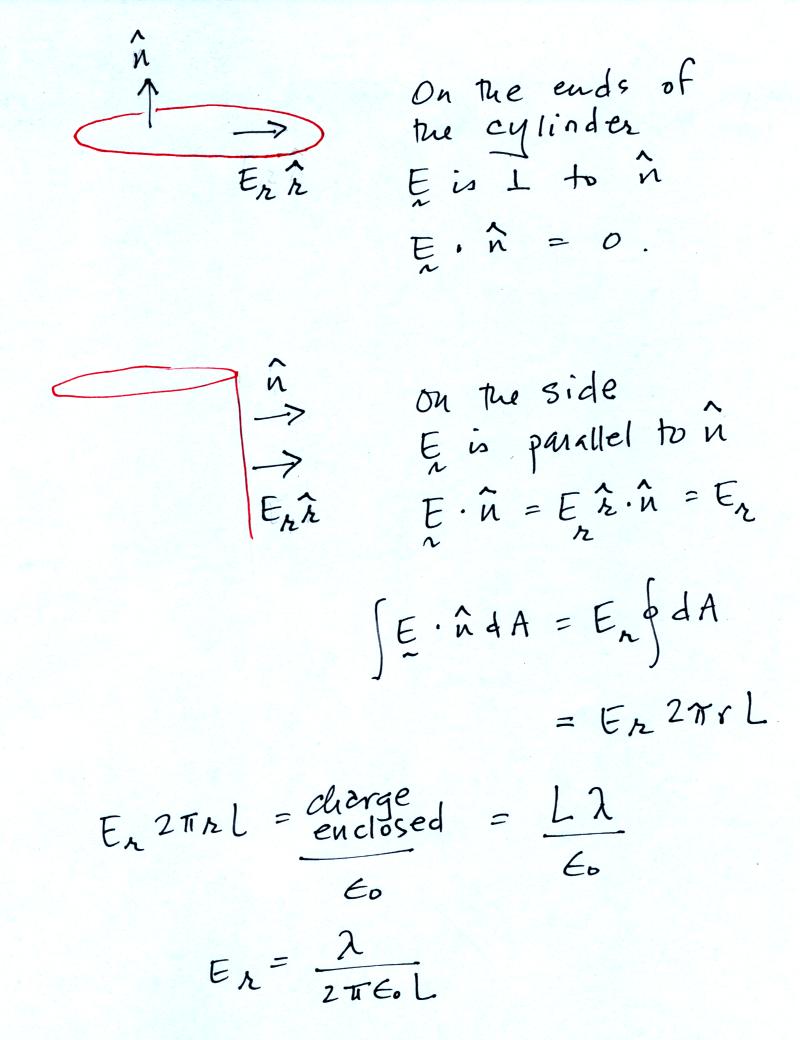 n̂
On the ends of
the cylinder
E_r r̂
Ḛ is ⊥ to n̂
Ḛ · n̂ = 0 .
n̂
on the side
Ḛ is parallel to n̂
E_r r̂
Ḛ · n̂ = E_r r̂ · n̂ = E_r
∫ Ḛ · n̂ dA = E_r ∮ dA
= E_r 2πr L
E_r 2πr L = charge enclosed / ϵ₀ = L λ / ϵ₀
E_r = λ / 2πϵ₀ L